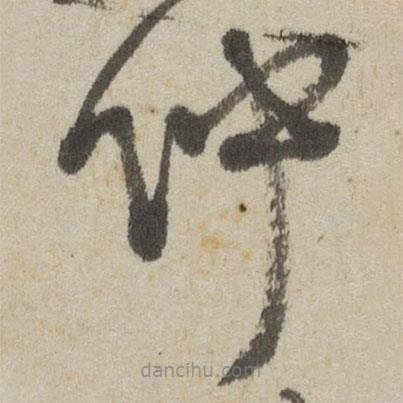 仲
dancihu.com